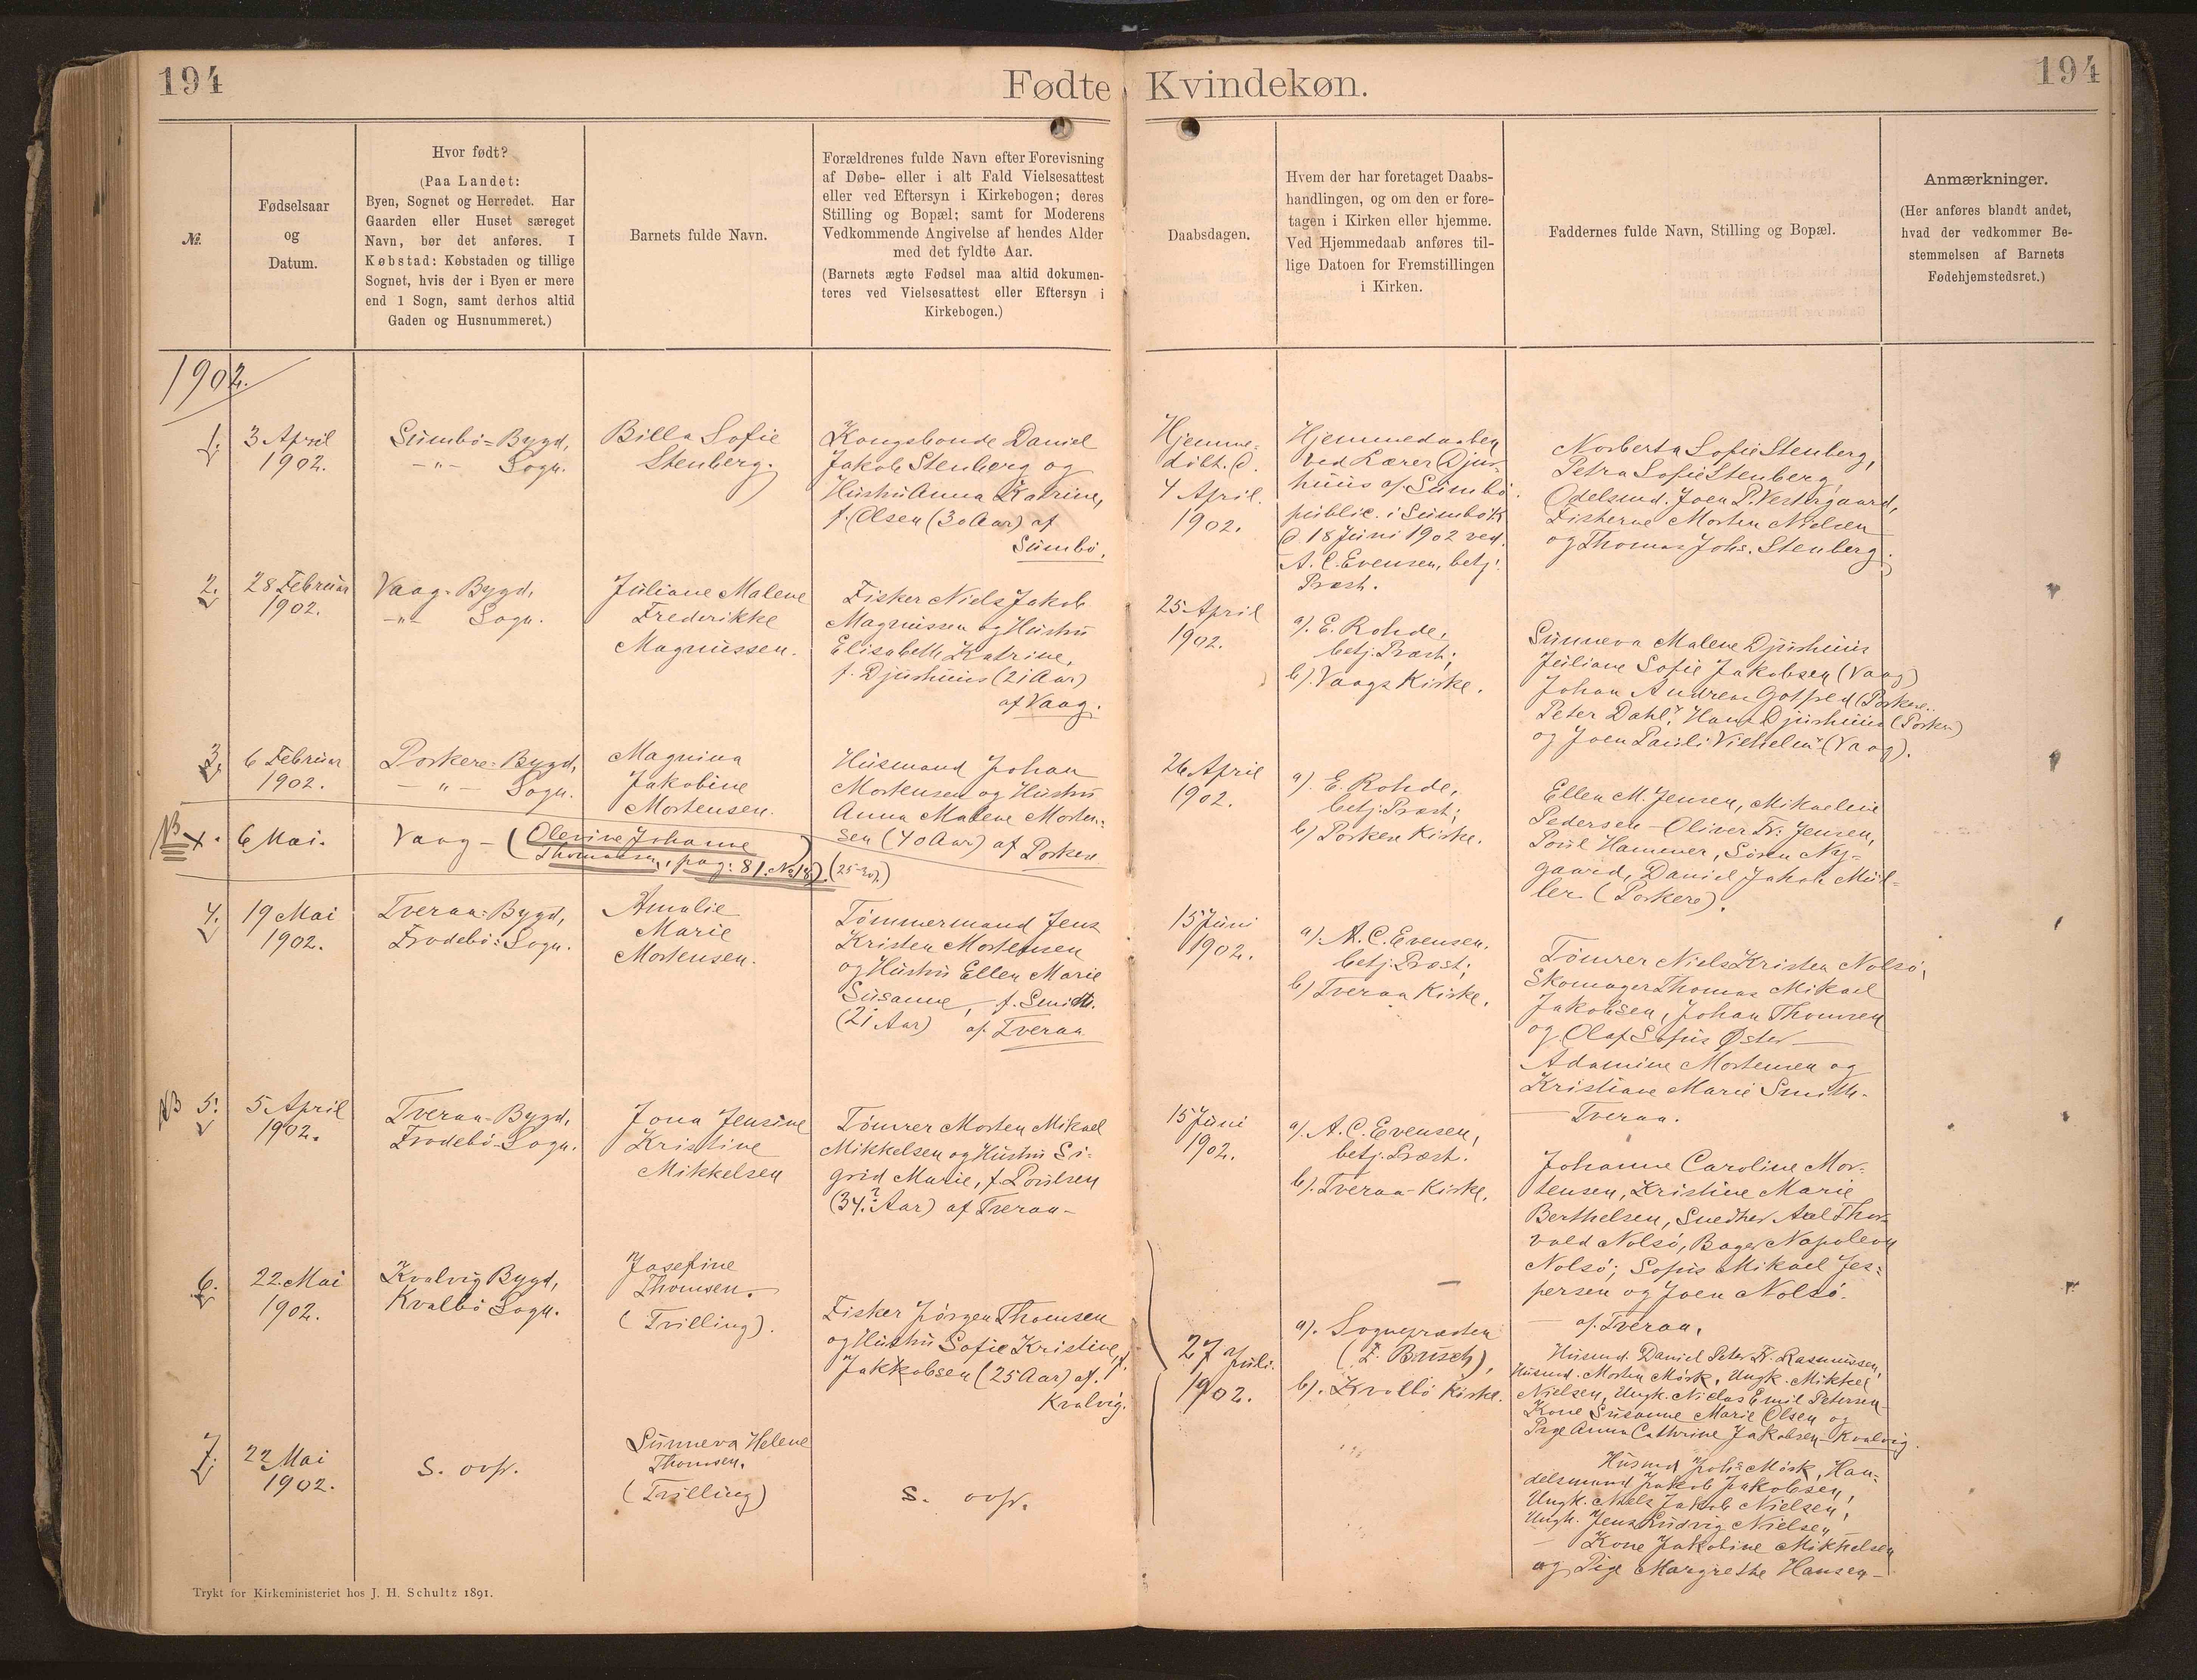 194
Fødte
Kvindekøn.
194
№.
Fødselsaar
og
Datum.
Hvor født?
(Paa Landet:
Byen, Sognet og Herredet. Har
Gaarden eller Huset særeget
Navn, bør det anføres. I
Købstad: Købstaden og tillige
Sognet, hvis der i Byen er mere
end 1 Sogn, samt derhos altid
Gaden og Husnummeret.)
Barnets fulde Navn.
Forældrenes fulde Navn efter Forevisning
af Døbe- eller i alt Fald Vielsesattest
eller ved Eftersyn i Kirkebogen; deres
Stilling og Bopæl; samt for Moderens
Vedkommende Angivelse af hendes Alder
med det fyldte Aar.
(Barnets ægte Fødsel maa altid dokumen-
teres ved Vielsesattest eller Eftersyn i
Kirkebogen.)
Daabsdagen.
Hvem der har foretaget Daabs-
handlingen, og om den er fore-
tagen i Kirken eller hjemme.
Ved Hjemmedaab anføres til-
lige Datoen for Fremstillingen
i Kirken.
Faddernes fulde Navn, Stilling og Bopæl.
Anmærkninger.
(Her anføres blandt andet,
hvad der vedkommer Be-
stemmelsen af Barnets
Fødehjemstedsret.)
1902.
1.
3 April
1902.
Sumbö=Bygd,
-"- Sogn.
Billa Sofie
Stenberg.
Kongsbonde Daniel
Jakob Stenberg og
Hustru Anna Katrine,
f. Olsen (30 Aar) af
Sumbö.
Hjemme=
döbt. d.
4 April.
1902.
Hjemmedaaben
ved Lærer Djur-
huus af Sumbö.
public. i Sumbö K
d 18 Juni 1902 ved.
A. C. Evensen, betj.
Præst.
Norberta Sofie Stenberg,
Petra Sofie Stenberg,
Odelsmd. Joen P. Vestergaard,
Fiskerne Morten Nielsen
og Thomas Johs. Stenberg.
2.
28 Februar
1902.
Vaag=Bygd,
-"- Sogn.
Juliane Malene
Frederikke
Magnussen.
Fisker Niels Jakob
Magnussen og Hustru
Elisabeth Katrine,
f. Djurhuus (21 Aar)
af Vaag.
25 April
1902.
a). E. Rohde,
betj. Præst;
b). Vaags Kirke.
Sunneva Malene Djurhuus
Juliane Sofie Jakobsen (Vaag)
Johan Andreas (Porkere..
Peter Dahl, Hans Djurhuus (Porkere)
og Joen Pauli Vilhelm (Vaag).
3.
6 Februar
1902.
Porkere=Bygd,
-"- Sogn.
Magnina
Jakobine
Mortensen.
Husmand Johan
Mortensen og Hustru
Anna Malene Morten=
sen (40 Aar) af Porkere
26 April
1902.
a). E. Rohde,
betj. Præst;
b) Porkere Kirke.
Ellen M. Jensen, Mikaeline
Pedersen - Oliver Fr. Jensen,
Poul Hammer, Sören Ny=
gaard, Daniel Jakob Mül=
ler (Porkere).
NB x.
6 Mai.
Vaag - (Olevine Johanne
Thomassen, pag: 81. No 18). (25-30/.)
4.
19 Mai
1902.
Tveraa=Bygd,
Frodebö=Sogn.
Amalie
Marie
Mortensen.
Tömmermand Jens
Kristen Mortensen
og Hustru Ellen Marie
Susanne, f. Smith.
(21 Aar) af Tveraa
15 Juni
1902.
a). A. C. Evensen.
betj. Præst;
b) Tveraa Kirke.
Tömrer Niels Kristen Nolsö,
Skomager Thomas Mikael
Jakobsen, Johan Thomsen
og Olaf Sofus Øster -
Adamine Mortensen og
Kristiane Marie Smith.
- Tveraa.
NB 5.
5 April
1902.
Tveraa=Bygd,
Frodebö=Sogn.
Jona Jensine
Kristine
Mikkelsen
Tömrer Morten Mikael
Mikkelsen og Hustru Si=
grid Marie, f. Poulsen
(34? Aar) af Tveraa -
15 Juni
1902.
a). A. C. Evensen,
betj. Præst.
b). Tveraa-Kirke.
Johanne Caroline Mor=
tensen, Kristine Marie
Berthelsen, Snedker Axel Thor=
vald Nolsö, Bager Napoleon
Nolsö; Sofus Mikael Jes=
persen og Joen Nolsö.
- af Tveraa.
6.
22 Mai
1902.
Kvalvig Bygd,
Kvalbö Sogn.
Josefine
Thomsen.
(Tvilling).
Fisker Jörgen Thomsen
og Hustru Sofie Kristine, f.
Jakkobsen (25 Aar) af.
Kvalvig.
27 Juli.
1902.
a). Sognepræsten
(F. Brusch),
b). Kvalbö Kirke.
Husmd. Daniel Peter Fr. Rasmussen,
Husmd. Morten Mörk, Ungk. Mikkel
Nielsen, Ungk. Niclas Emil Petersen
Kone Susanne Marie Olsen og
Pige Anna Cathrine Jakobsen - Kvalvig.
7.
22 Mai
1902.
s. ovfr.
Sunneva Helene
Thomsen.
(Tvilling)
s. ovfr.
Husmd Johs Mörk, Han=
delsmand Jakob Jakobsen,
Ungk. Niels Jakob Nielsen,
Ungk. Jens Ludvig Nielsen
- Kone Jakobine Mikkelsen
og Pige Margrethe Hansen -
Trykt for Kirkeministeriet hos J. H. Schultz 1891.